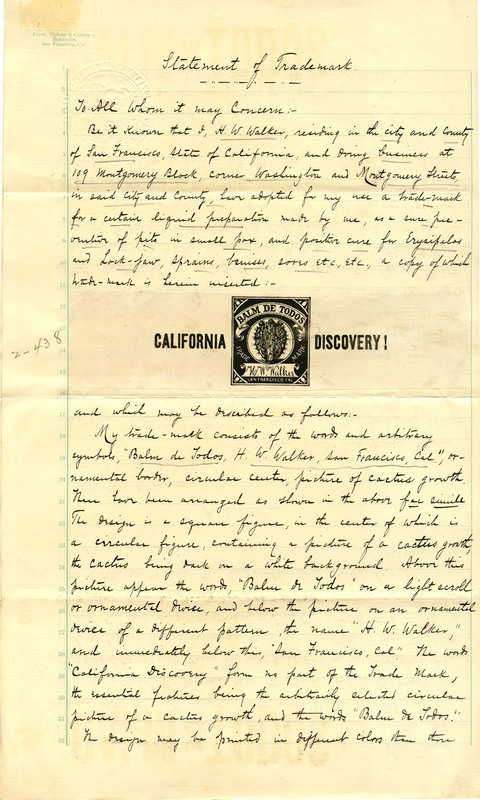 San Francisco, Cal.
Statement of Trademark.
To All Whom it may Concern:-
Be it Known that I, H. W. Walker, residing in the city and County
of San Francisco, State of California, and doing business at
109 Montgomery Block, corner Washington and Montgomery Streets,
in said City and County, have adopted for my use a trade-mark
for a certain liquid preparation made by me, as a sure pre-
ventive of pits in small pox, and positive cure for Erysipelas
and Lock-jaw, sprains, bruises, sores etc, etc, a copy of which
trade-mark is herein inserted:-
2-438
BALM DE TODOS
CALIFORNIA DISCOVERY!
TRADE MARK
H. W. Walker
SAN FRANCISCO, CAL.
and which may be described as follows:-
My trade-mark consists of the words and arbitrary
symbols, "Balm de Todos, H. W. Walker, San Francisco, Cal.", or-
namental border, circular center, picture of cactus growth.
These have been arranged as shown in the above fac simile
The design is a square figure, in the center of which is
a circular figure, containing a picture of a cactus growth,
the cactus being dark on a white background. Above this
picture appear the words, "Balm de Todos" on a light scroll
or ornamental device, and below the picture on an ornamental
device of a different pattern, the name "H. W. Walker,"
and immediately below this, "San Francisco, Cal." The words
"California Discovery" form no part of the Trade Mark,
the essential features being the arbitrarily selected circular
picture of a cactus growth, and the words "Balm de Todos."
The design may be printed in different colors than those